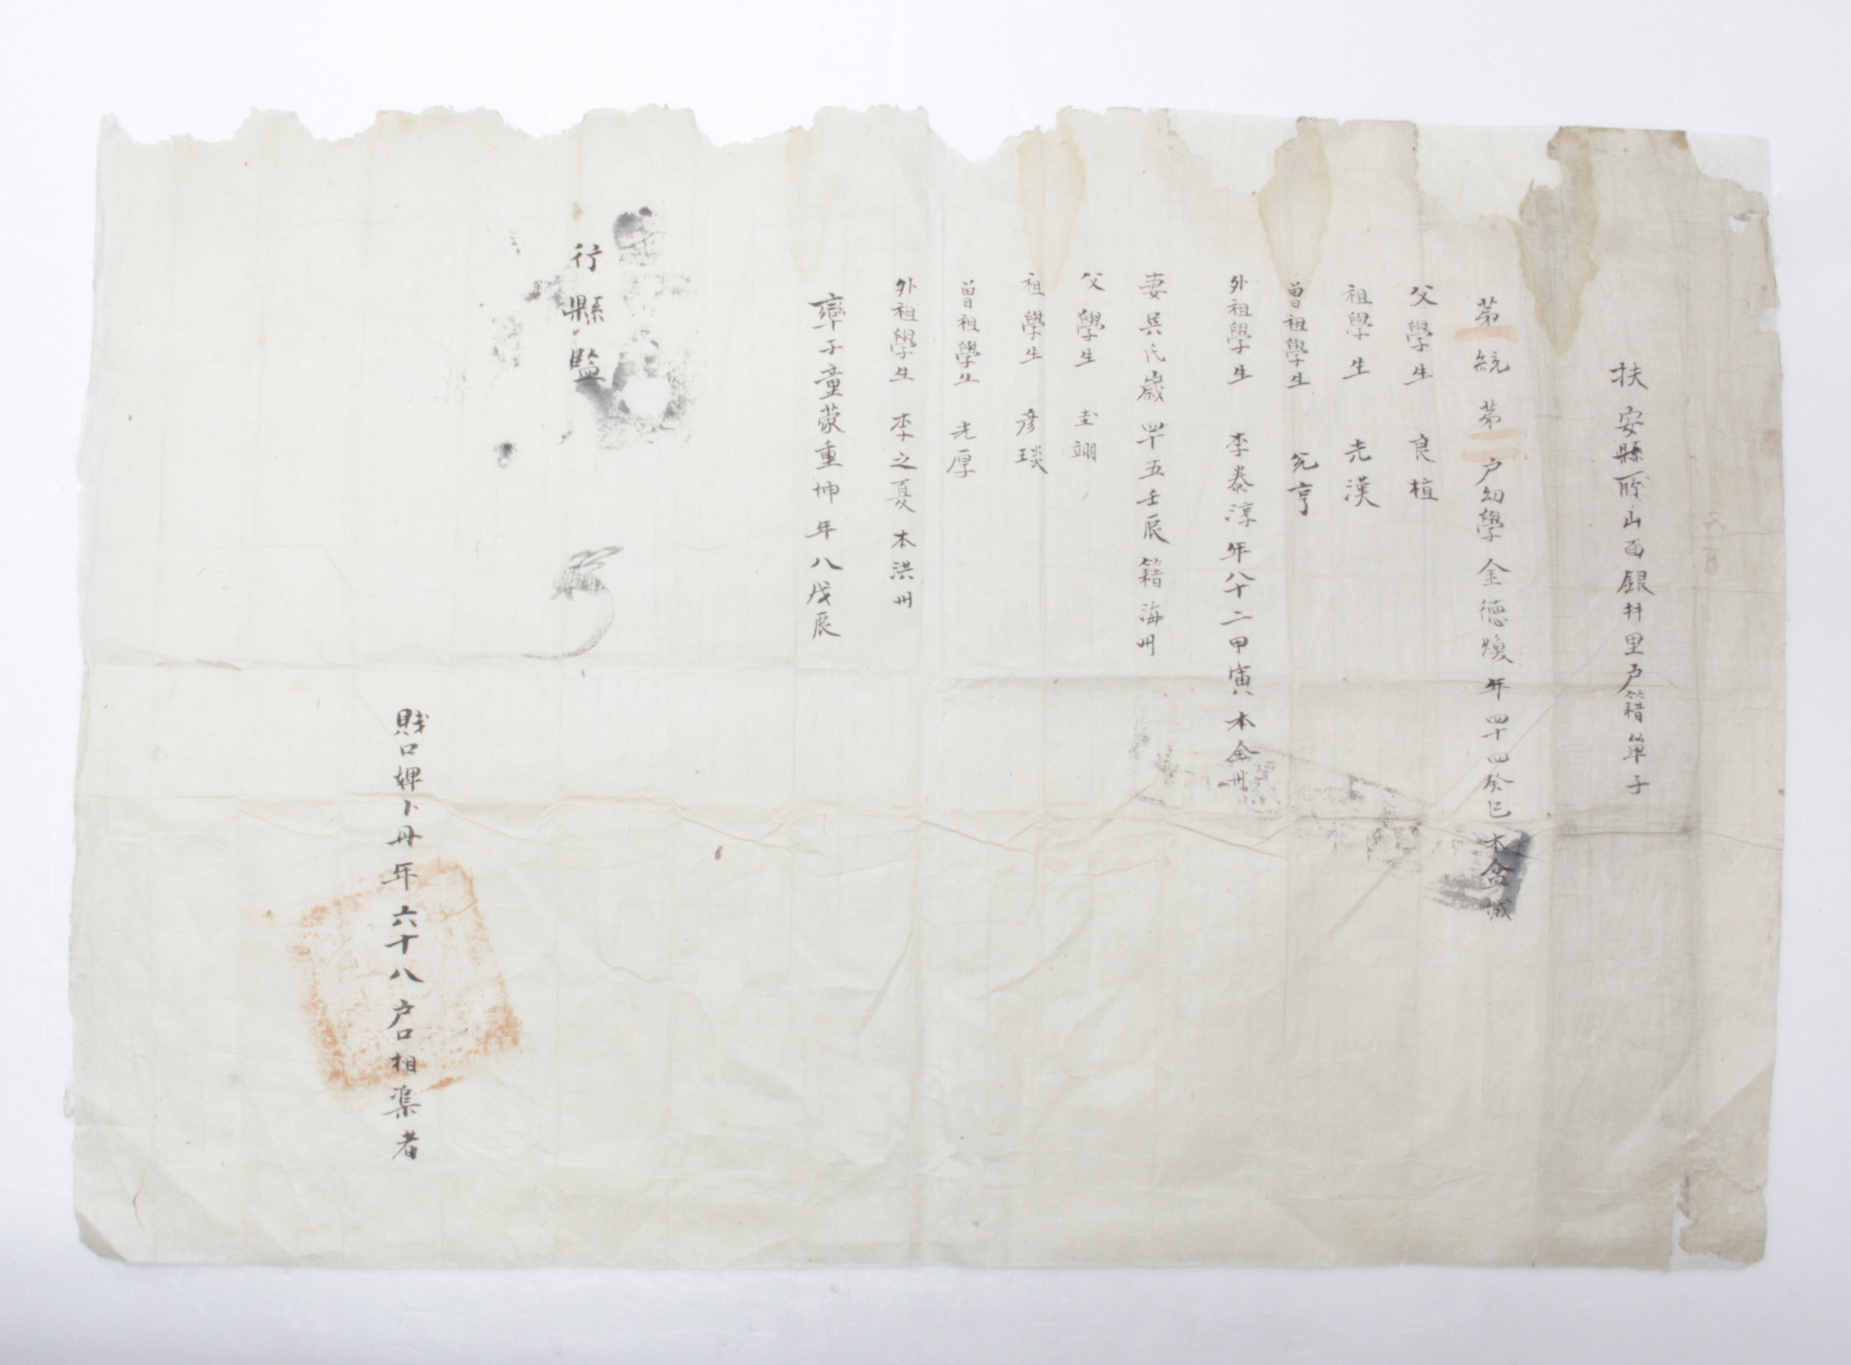 扶安縣所山面銀井里戶籍單子
第 統 第 戶幼學 金德煥 年四十四癸巳本金城
父學生 良植
祖學生 光漢
曾祖學生
外祖學生 李泰淳年八十二甲寅本全州
妻吳氏歲四十五壬辰籍海州
父學生 圭翊
祖學生 彦琰
曾祖學生 光厚
外祖學生 李之夏 本洪州
率子童蒙重坤年八戊辰
行縣監
賤口婢卜丹年六十八戶口相準者